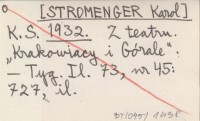 [STROMENGER Karol]
K. S. 1932. Z teatru.
„Krakowiacy i Górale":
— Tyg. Il. 73, nr 45:
727, il.